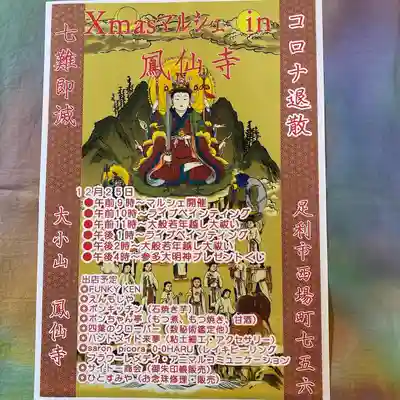 Xmasマルシェ in
鳳仙寺
コロナ退散
七難即滅
12月25日
●午前9時〜マルシェ開催
●午前10時〜ライブペインティング
●午前11時〜大般若年越し大祓い
●午後1時〜ライブペインティング
●午後2時〜大般若年越し大祓い
●午後4時〜参多大明神プレゼントくじ
出店予定
◎FUNKY KEN
◎えんもじや
◎ポッキー（石焼き芋）
◎ポンちゃん亭（もつ煮、もつ焼き、甘酒）
◎四葉のクローバー（数秘術鑑定他）
◎ハンドメイド来夢（粘土細工・アクセサリー）
◎saron picora
◎O-HARU（レイキヒーリング
フラワーレメディ・アニマルコミュニケーション
◎サイトー商会（御朱印帳販売）
◎ひとすみや（お念珠修理・販売）
大小山 鳳仙寺
足利市西場町七五六